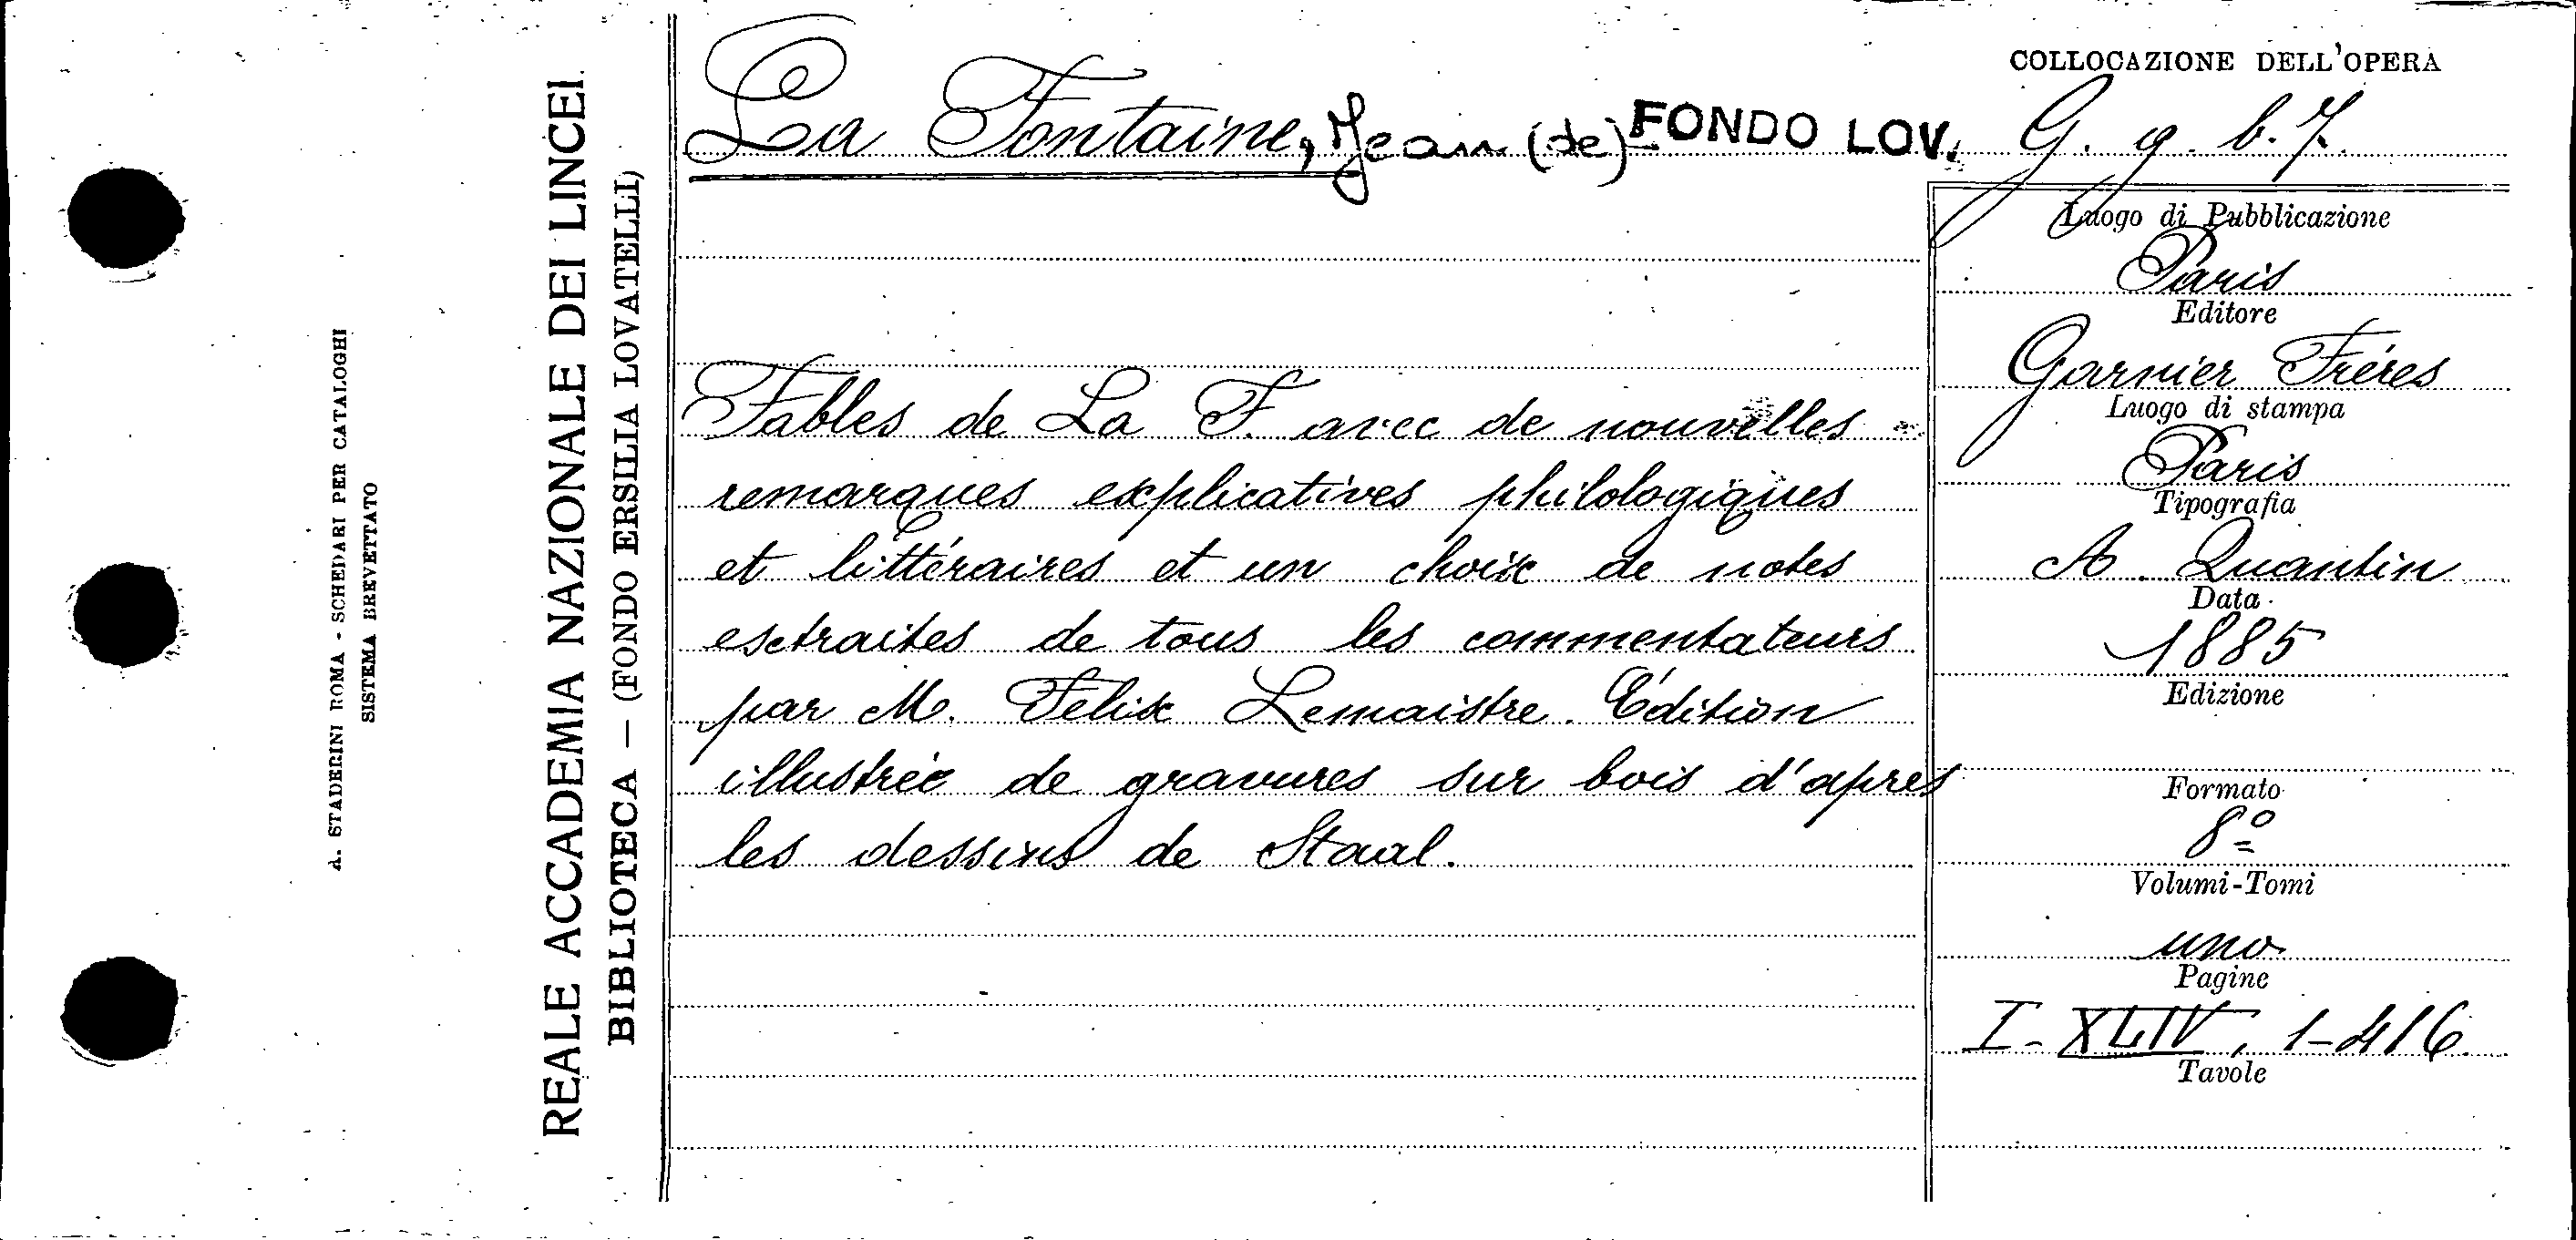 A. STADERINI ROMA - SCHEDARI PER CATALOGHI
SISTEMA BREVETTATO
REALE ACCADEMIA NAZIONALE DEI LINCEI
BIBLIOTECA — (FONDO ERSILIA LOVATELLI)
La Fontaine, Jean (de) FONDO LOV.
Fables de La F. avec de nouvelles
remarques explicatives philologiques
et littéraires et un choix de notes
extraites de tous les commentateurs
par M. Felix Lemaistre. Édition
illustrée de gravures sur bois d'apres
les dessins de Staal.
COLLOCAZIONE DELL'OPERA
G. g. b. 7.
Luogo di Pubblicazione
Paris
Editore
Garnier Fréres
Luogo di stampa
Paris
Tipografia
A. Quantin
Data
1885
Edizione
Formato
8º
Volumi-Tomi
uno
Pagine
I-XLIV, 1-416
Tavole